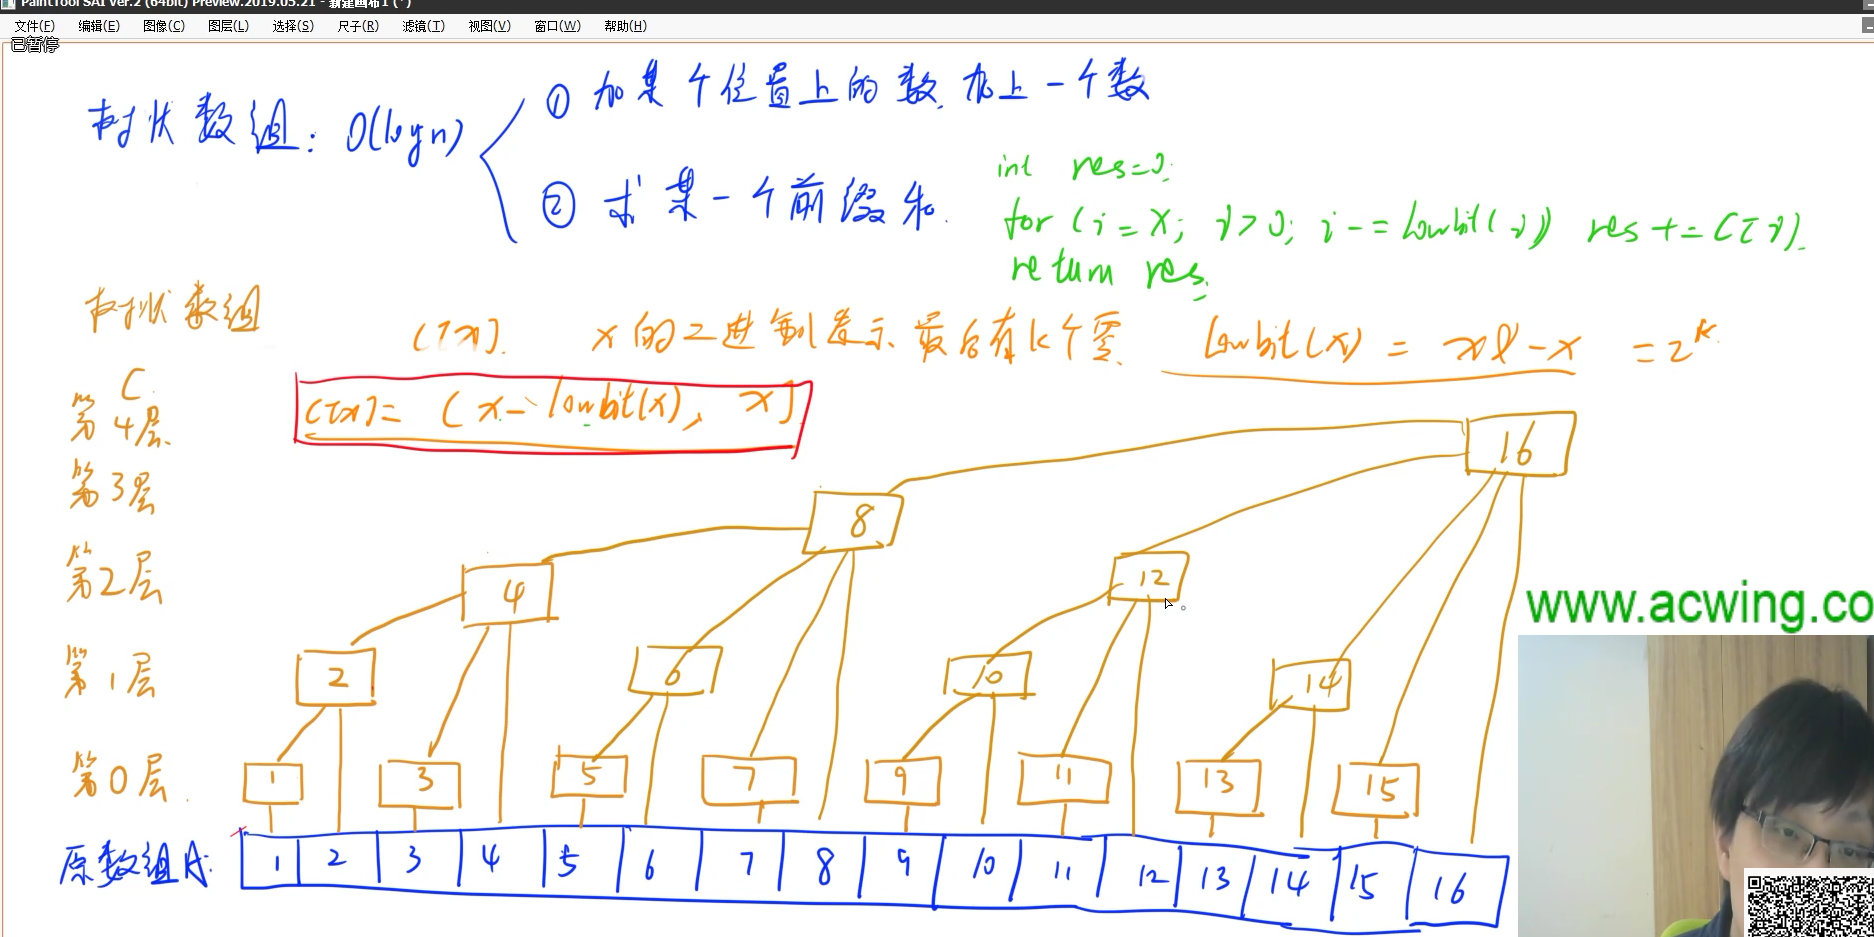 PaintTool SAI Ver.2 (64bit) Preview.2019.05.21 - 新建画布1 (*)
文件(F) 编辑(E) 图像(C) 图层(L) 选择(S) 尺子(R) 滤镜(T) 视图(V) 窗口(W) 帮助(H)
已暂停
树状数组: O(logn)
① 加某个位置上的数,加上一个数
② 求某一个前缀和.
int res=0;
for (i = x; i > 0; i -= lowbit(i)) res += C[i].
return res;
树状数组
C
C[x]. x的二进制表示最后有k个零. lowbit(x) = x&-x = 2^k.
C[x] = (x - lowbit(x), x]
第4层.
第3层
第2层
第1层
第0层.
16
8
4 12
2 6 10 14
1 3 5 7 9 11 13 15
原数组A: 1 2 3 4 5 6 7 8 9 10 11 12 13 14 15 16
www.acwing.co